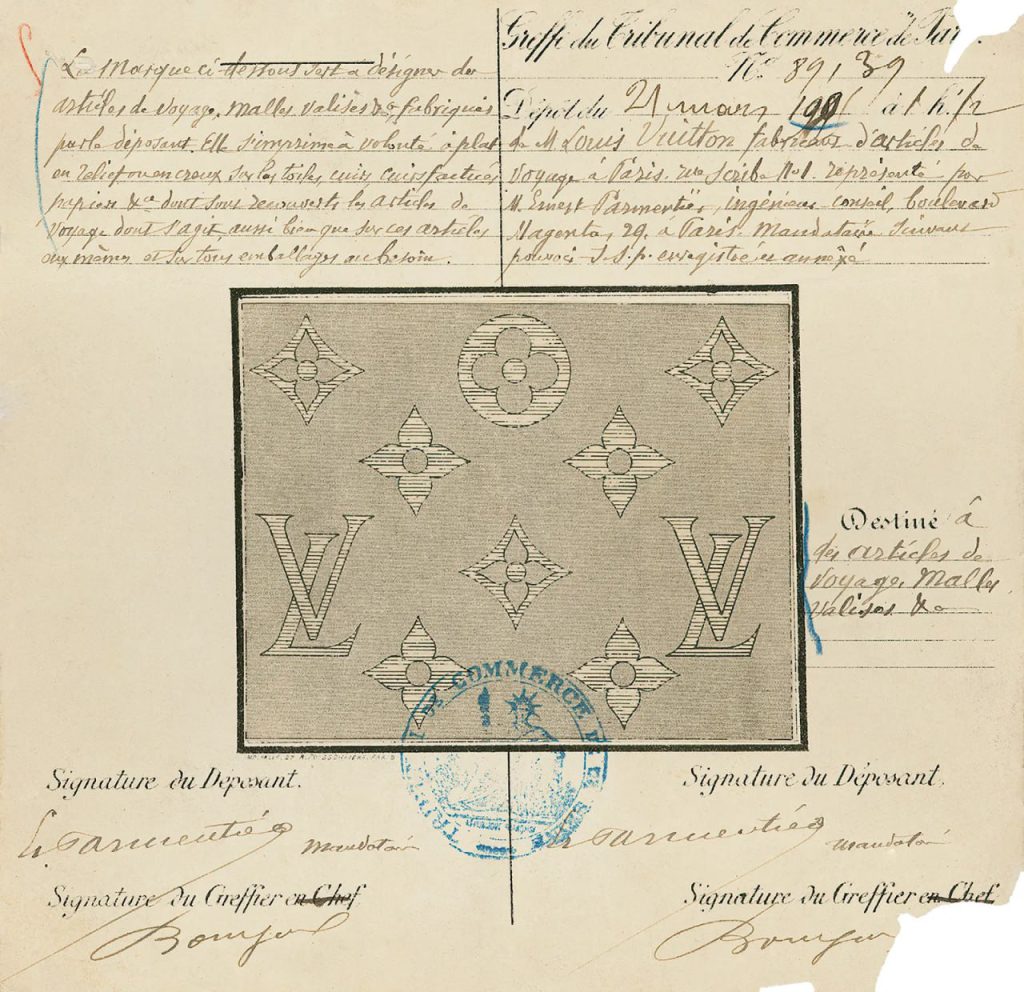 La Marque ci dessous sert à désigner des
articles de voyage, malles valises &c fabriqués
par le déposant. Elle s'imprime à volonté à plat
en relief ou en creux sur les toiles, cuirs, cuirs factices
papiers &ca dont sont recouverts les articles de
voyage dont s'agit aussi bien que sur ces articles
eux mêmes et sur tous emballages au besoin.
Greffe du Tribunal de Commerce de Paris.
No. 89,39
Dépôt du 21 mars à 1 h. 1/2
de M Louis Vuitton fabricant d'articles de
voyage à Paris. rue Scribe No 1. représenté par
M. Ernest Parmentier, ingénieur conseil, boulevard
Magenta, 29. à Paris. Mandataire suivant
pouvoir s.s.p. enregistré et annexé
LV
LV
Destiné à
des articles de
voyage, Malles
valises &a
TRIBUNAL DE COMMERCE DE LA SEINE
Signature du Déposant.
E. Parmentier mandataire
Signature du Greffier en Chef
Signature du Déposant.
E. Parmentier mandataire
Signature du Greffier en Chef